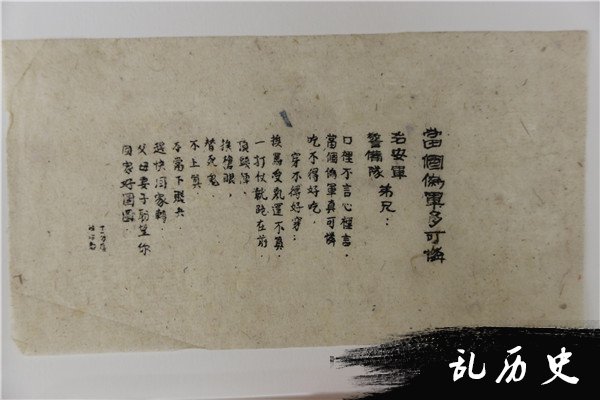 當個偽軍多可憐
治安軍
警備隊 弟兄：
口裡不言心裡言，
當個偽軍真可憐
吃不得好吃，
穿不得好穿；
挨罵受氣還不算，
一打仗就跑在前，
頂頭陣，
挨槍眼，
替死鬼
不上算
不當下賤兵
趕快回家轉
父母妻子盼望你
回家好團圓
乱历史